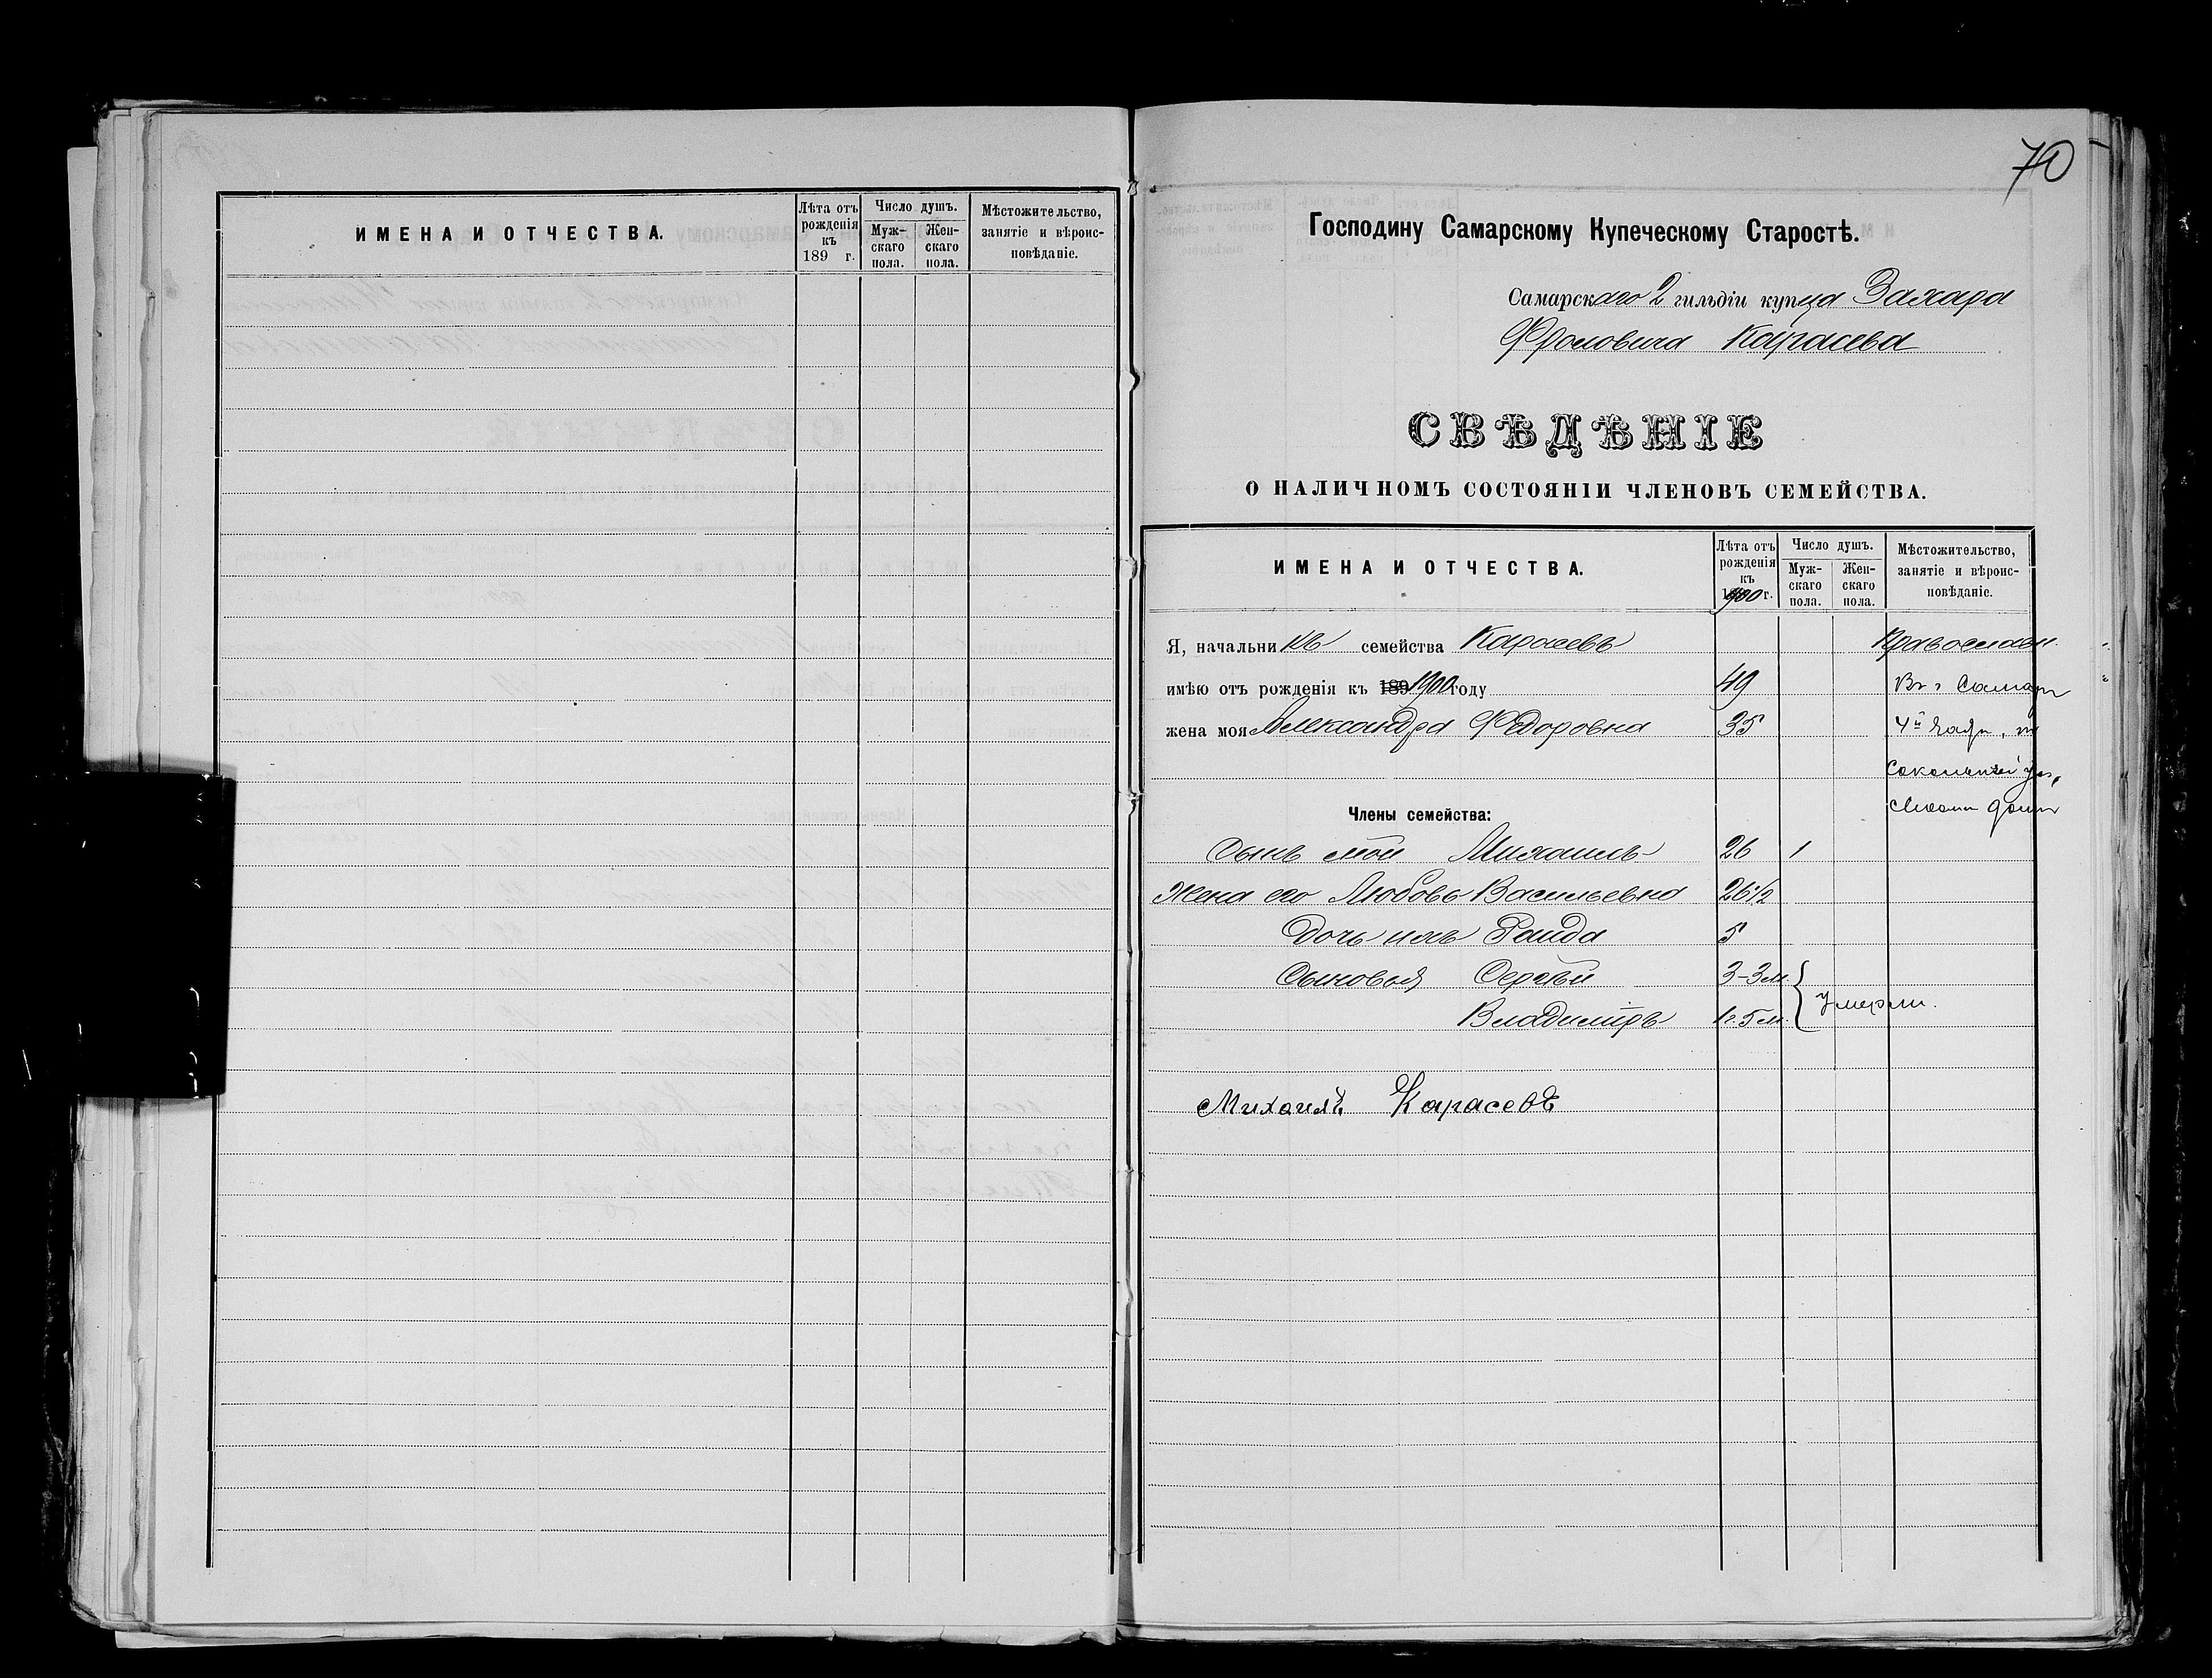 ИМЕНА И ОТЧЕСТВА.
Лѣта отъ рожденія къ 189 г.
Число душъ.
Муж-скаго пола.
Жен-скаго пола.
Мѣстожительство, занятіе и вѣроис-повѣданіе.
70
Господину Самарскому Купеческому Старостѣ.
Самарскаго 2 гильдіи купца Захара
Фроловича Карасева
СВѢДѢНІЕ
О НАЛИЧНОМЪ СОСТОЯНІИ ЧЛЕНОВЪ СЕМЕЙСТВА.
ИМЕНА И ОТЧЕСТВА.
Лѣта отъ рожденія къ 1900 г.
Число душъ.
Муж-скаго пола.
Жен-скаго пола.
Мѣстожительство, занятіе и вѣроис-повѣданіе.
Я, начальникъ семейства Карасевъ Православн.
имѣю отъ рожденія къ 189 1900 году 49 Въ г Самарѣ
жена моя Александра Федоровна 35 4й части,
Члены семейства: домъ
Сынъ мой Михаилъ 26 1
Жена его Любовь Васильевна 26 1/2
Дочь ихъ 5
Сыновья Сергѣй 3-3 м. } умерли.
Владиміръ 1 г. 5 м.
Михаилъ Карасевъ